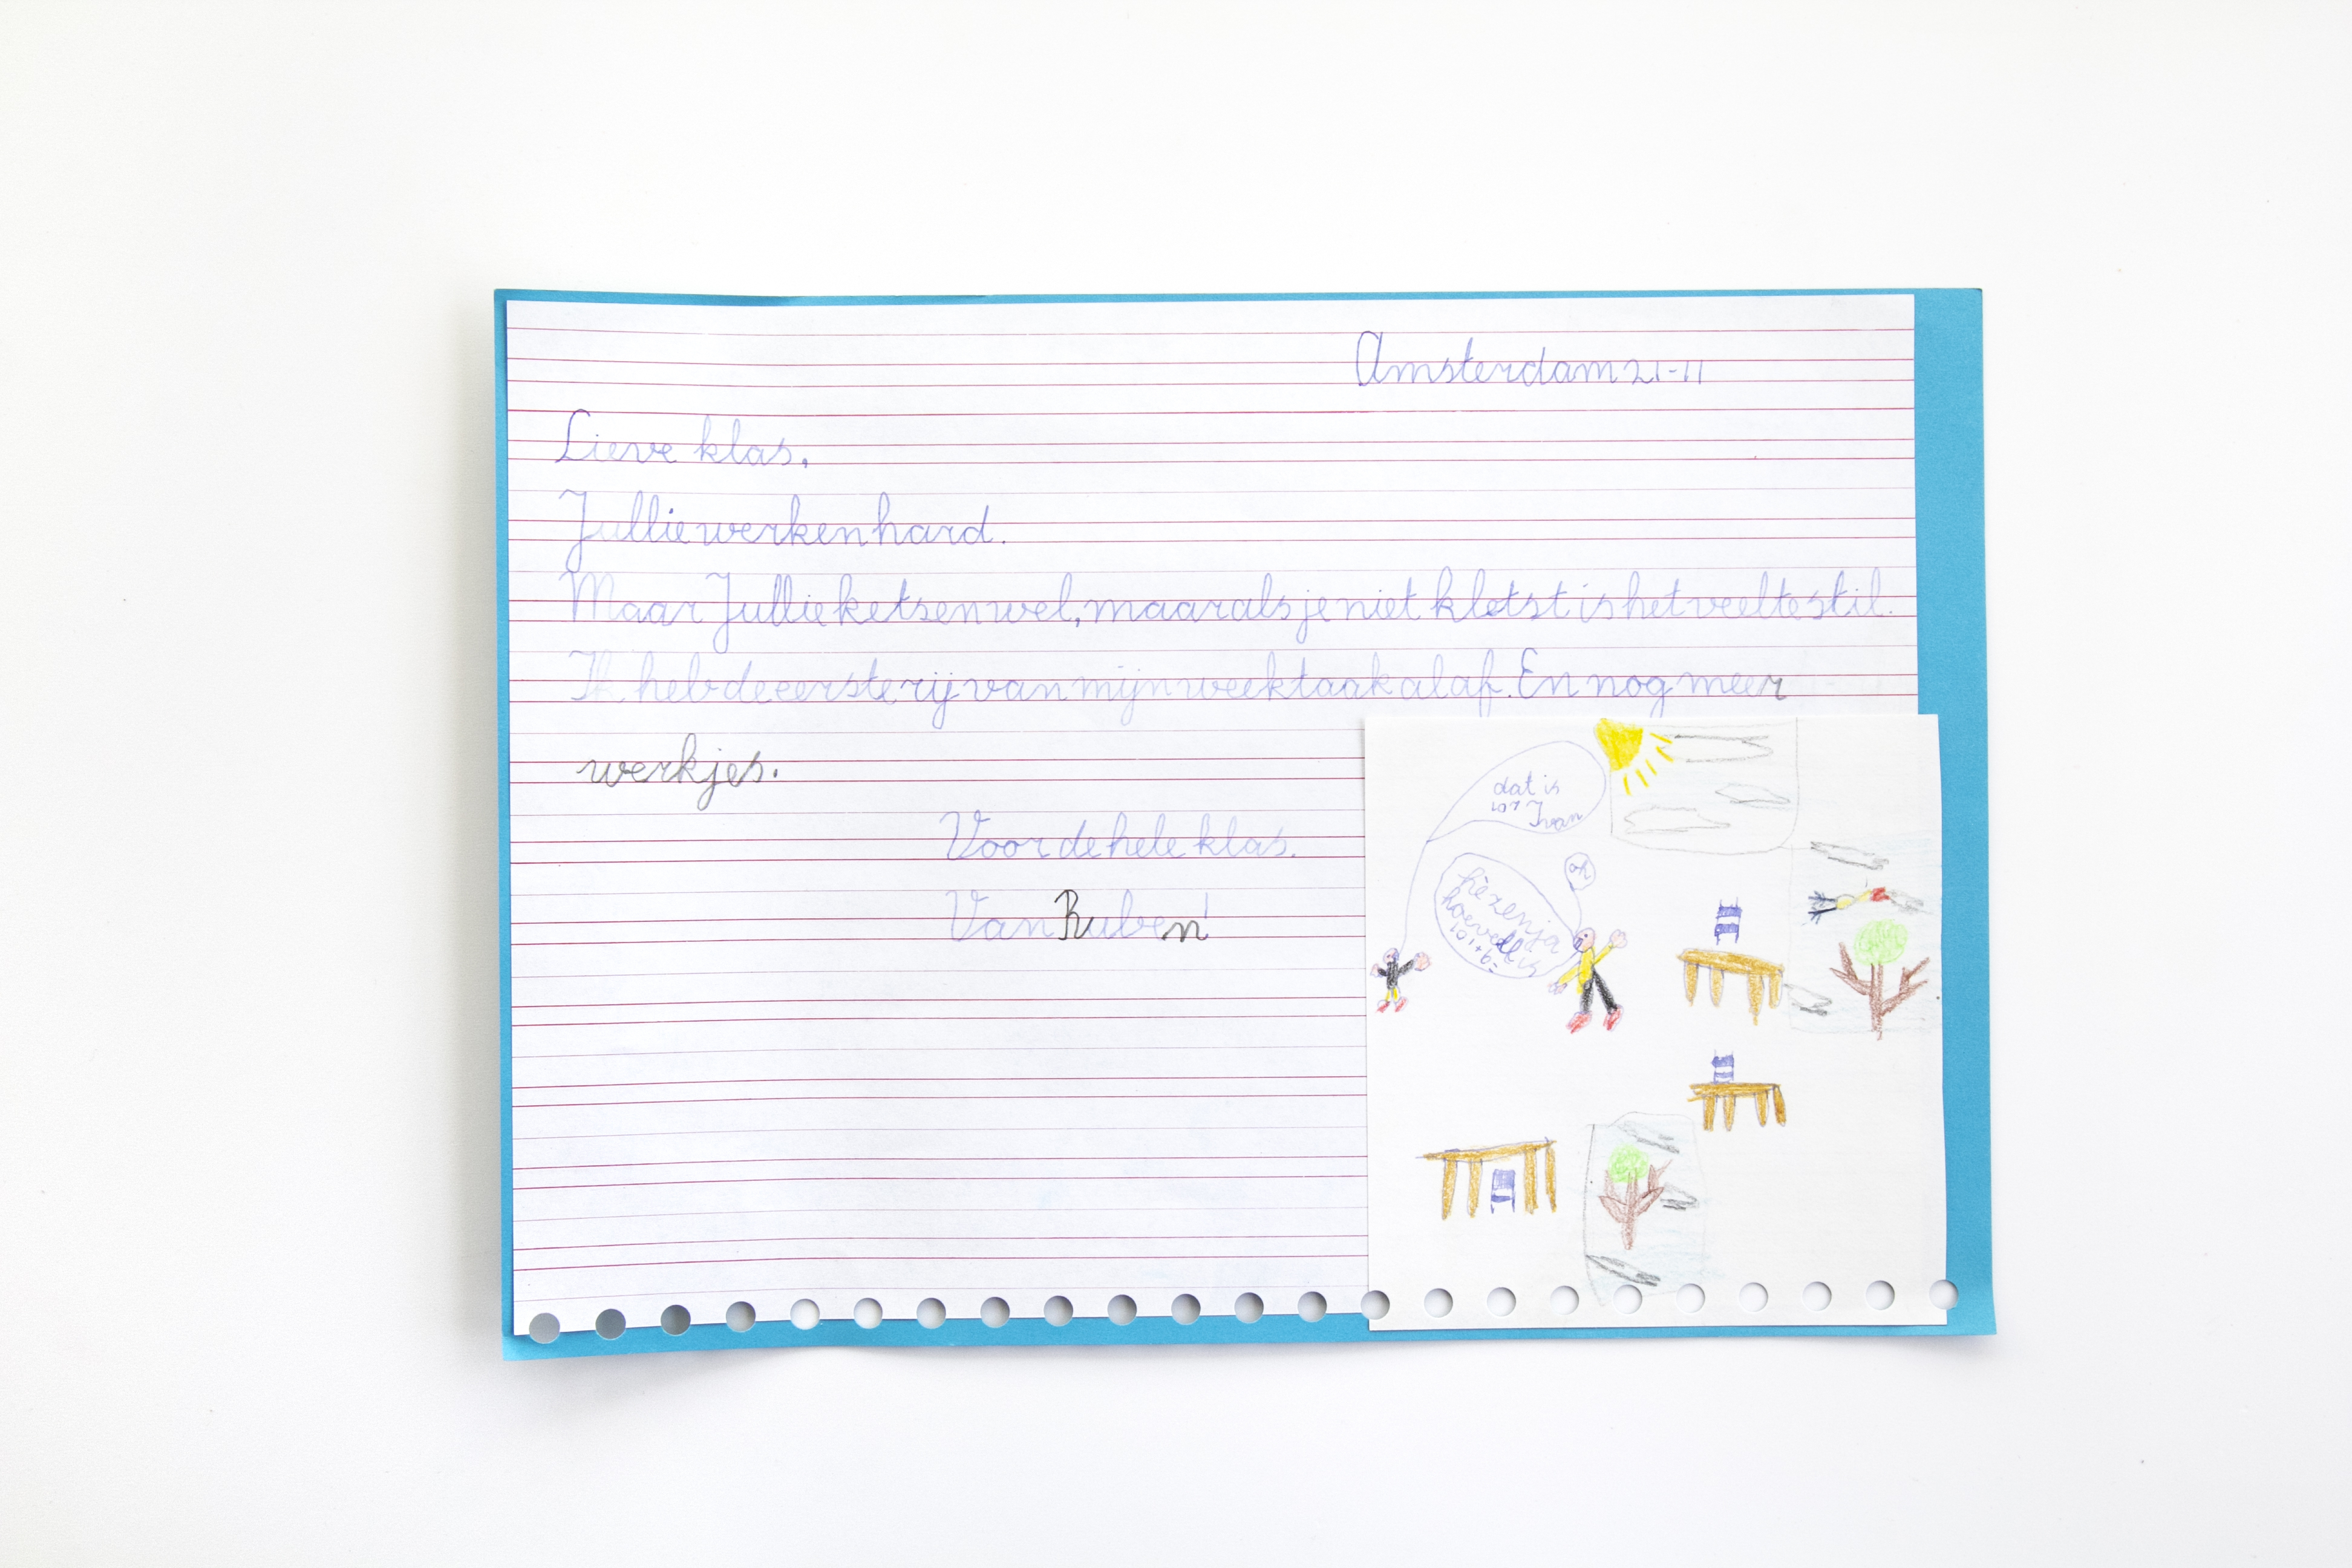 Amsterdam 21-11
Lieve klas,
Jullie werken hard.
Maar Jullie ketsen wel, maar als je niet kletst is het veel te stil.
Ik heb de eerste rij van mijn weektaak al af. En nog meer
werkjes.
Voor de hele klas.
Van Ruben!
dat is
107 Ivan
oh
hoeveel is
101+6=